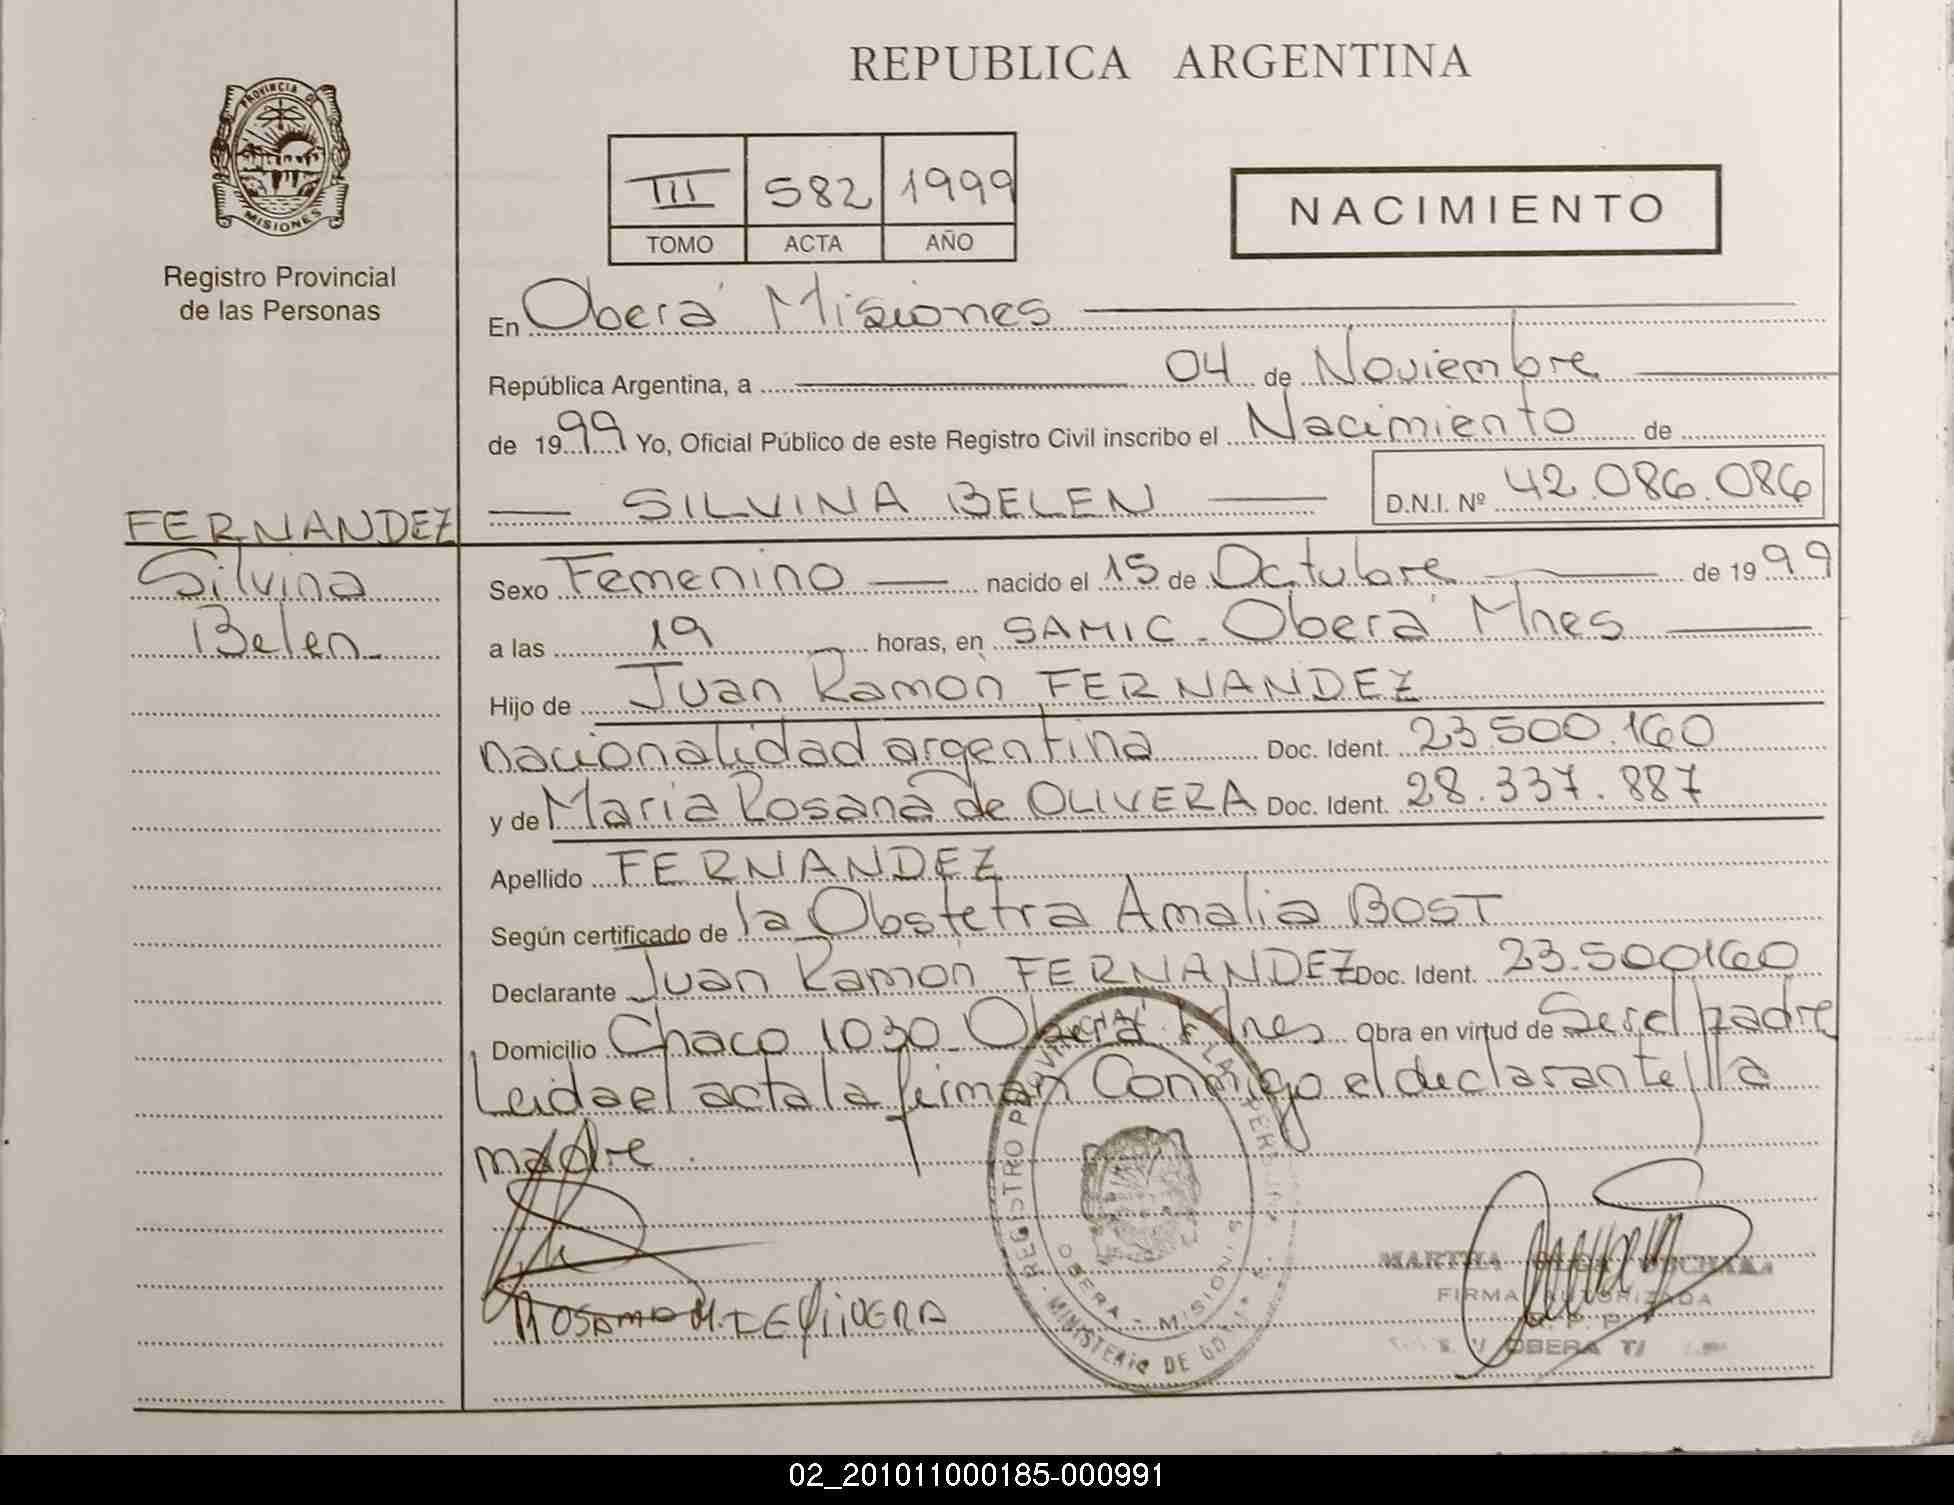 REPUBLICA ARGENTINA
PROVINCIA DE
MISIONES
Registro Provincial
de las Personas
III 582 1999
TOMO ACTA AÑO
NACIMIENTO
En Oberá Misiones
República Argentina, a 04 de Noviembre
de 1999 Yo, Oficial Público de este Registro Civil inscribo el Nacimiento de
SILVINA BELEN D.N.I. Nº 42.086.086
FERNANDEZ
Silvina
Belen
Sexo Femenino nacido el 15 de Octubre de 1999
a las 19 horas, en SAMIC - Oberá Mnes
Hijo de Juan Ramón FERNANDEZ
nacionalidad argentina Doc. Ident. 23.500.160
y de Maria Rosana de OLIVERA Doc. Ident. 28.337.887
Apellido FERNANDEZ
Según certificado de la Obstetra Amalia BOST
Declarante Juan Ramón FERNANDEZ Doc. Ident. 23.500160
Domicilio Chaco 1030 - Oberá Mnes Obra en virtud de Ser el padre
Leida el acta la firman Conmigo el declarante y la
madre.
REGISTRO PROVINCIAL DE LAS PERSONAS
OBERA - MISIONES
MINISTERIO DE GOB
MARTHA OLGA
FIRMA AUTORIZADA
OBERA
02_201011000185-000991